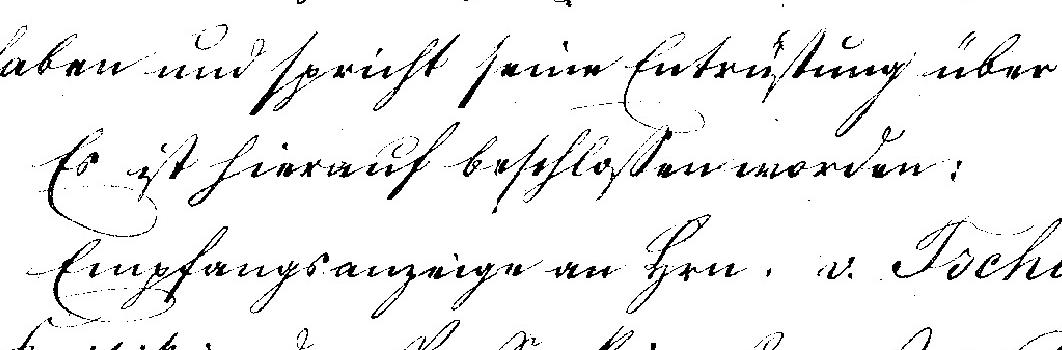 haben und spricht seine Entrüstung über
Es ist hierauf beschloßen worden:
Empfangsanzeige an Hrn. v. Tscha